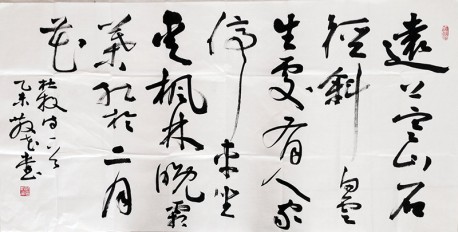 遠上寒山石
徑斜白雲
生處有人家
停車坐
愛楓林晚霜
葉紅於二月
花
杜牧詩一首
乙未書